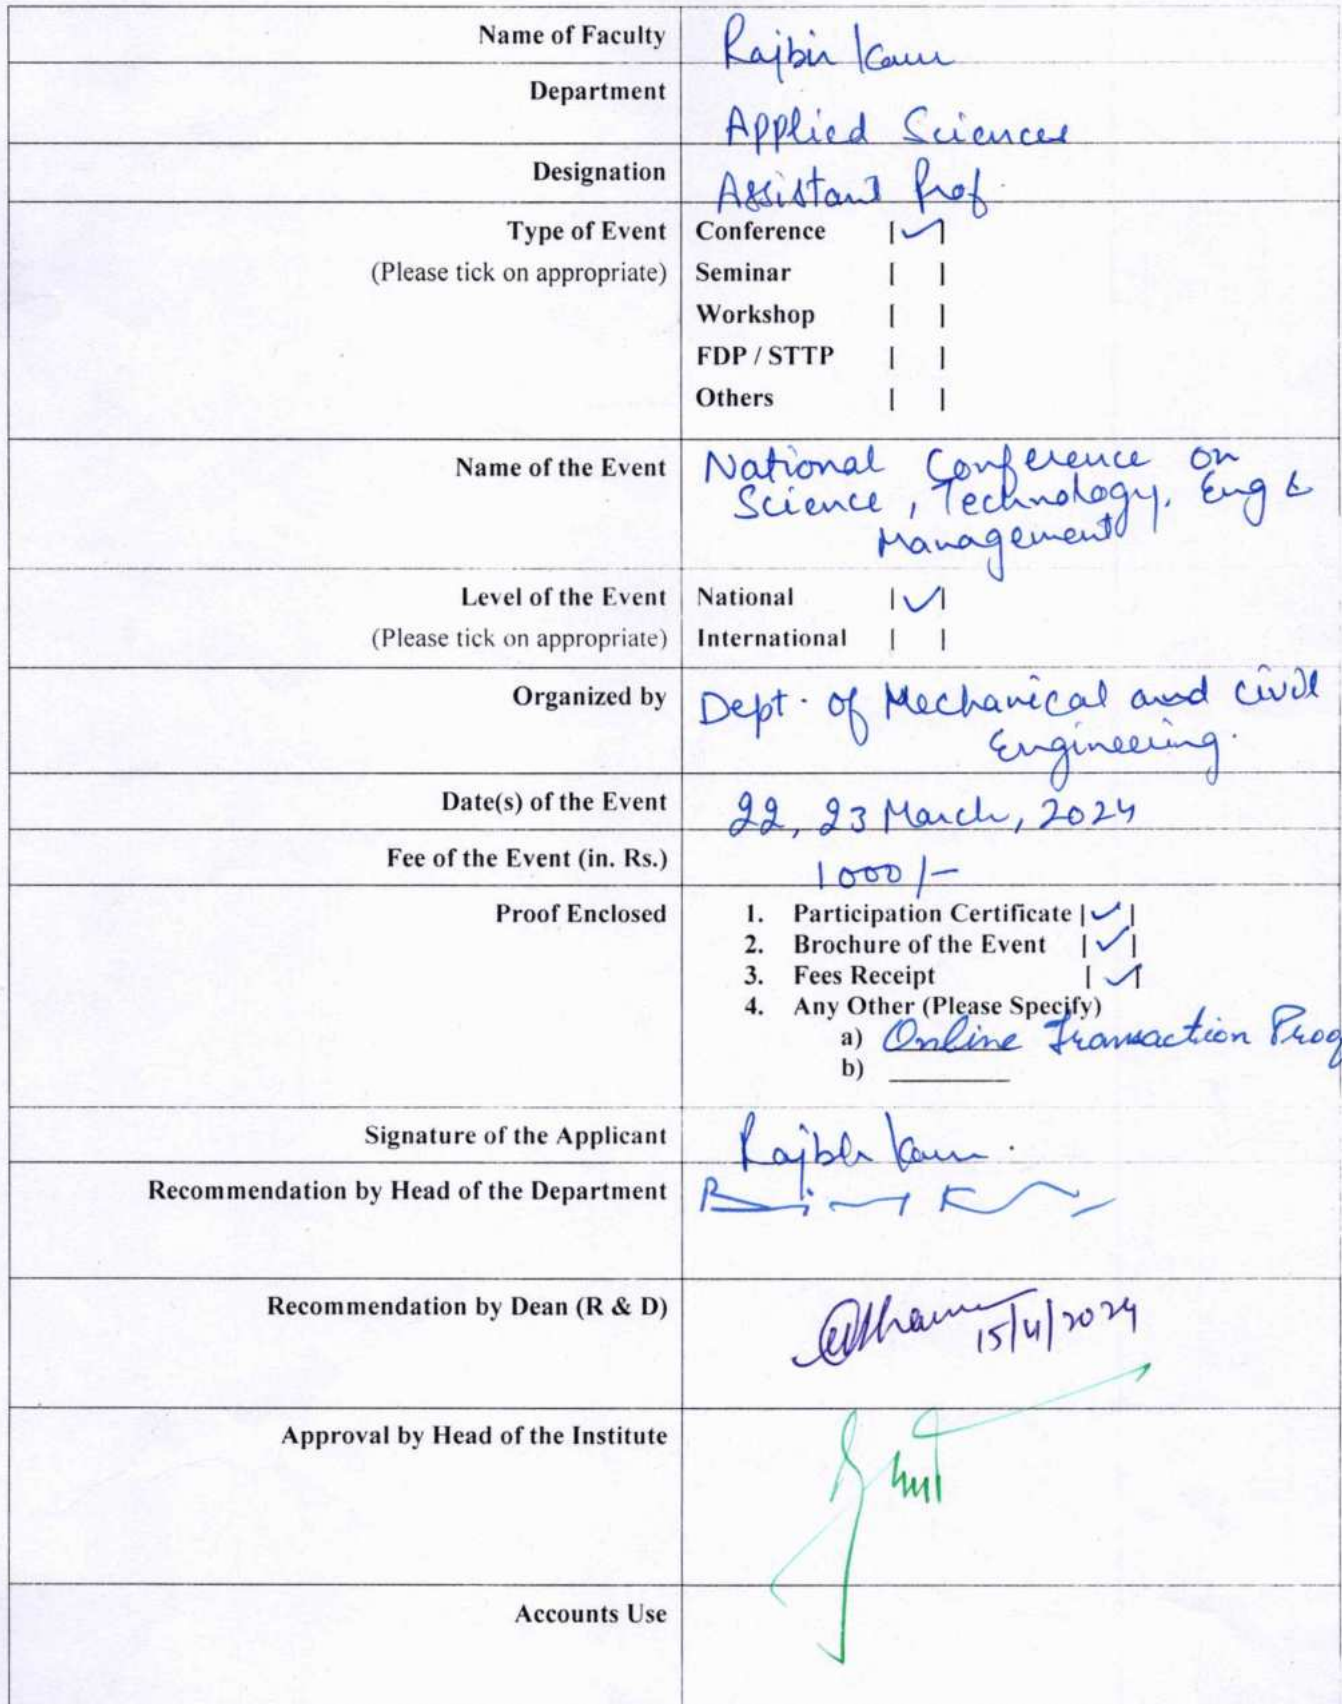 Name of Faculty Rajbir Kaur
Department Applied Sciences
Designation Assistant Prof.
Type of Event Conference |✓|
(Please tick on appropriate) Seminar | |
Workshop | |
FDP / STTP | |
Others | |
Name of the Event National Conference on
Science, Technology, Eng &
Management
Level of the Event National |✓|
(Please tick on appropriate) International | |
Organized by Dept. of Mechanical and civil
Engineering.
Date(s) of the Event 22, 23 March, 2024
Fee of the Event (in. Rs.) 1000/-
Proof Enclosed 1. Participation Certificate |✓|
2. Brochure of the Event |✓|
3. Fees Receipt |✓|
4. Any Other (Please Specify)
a) Online Transaction Proof
b) ________
Signature of the Applicant Rajbir Kaur.
Recommendation by Head of the Department
Recommendation by Dean (R & D) 15/4/2024
Approval by Head of the Institute
Accounts Use